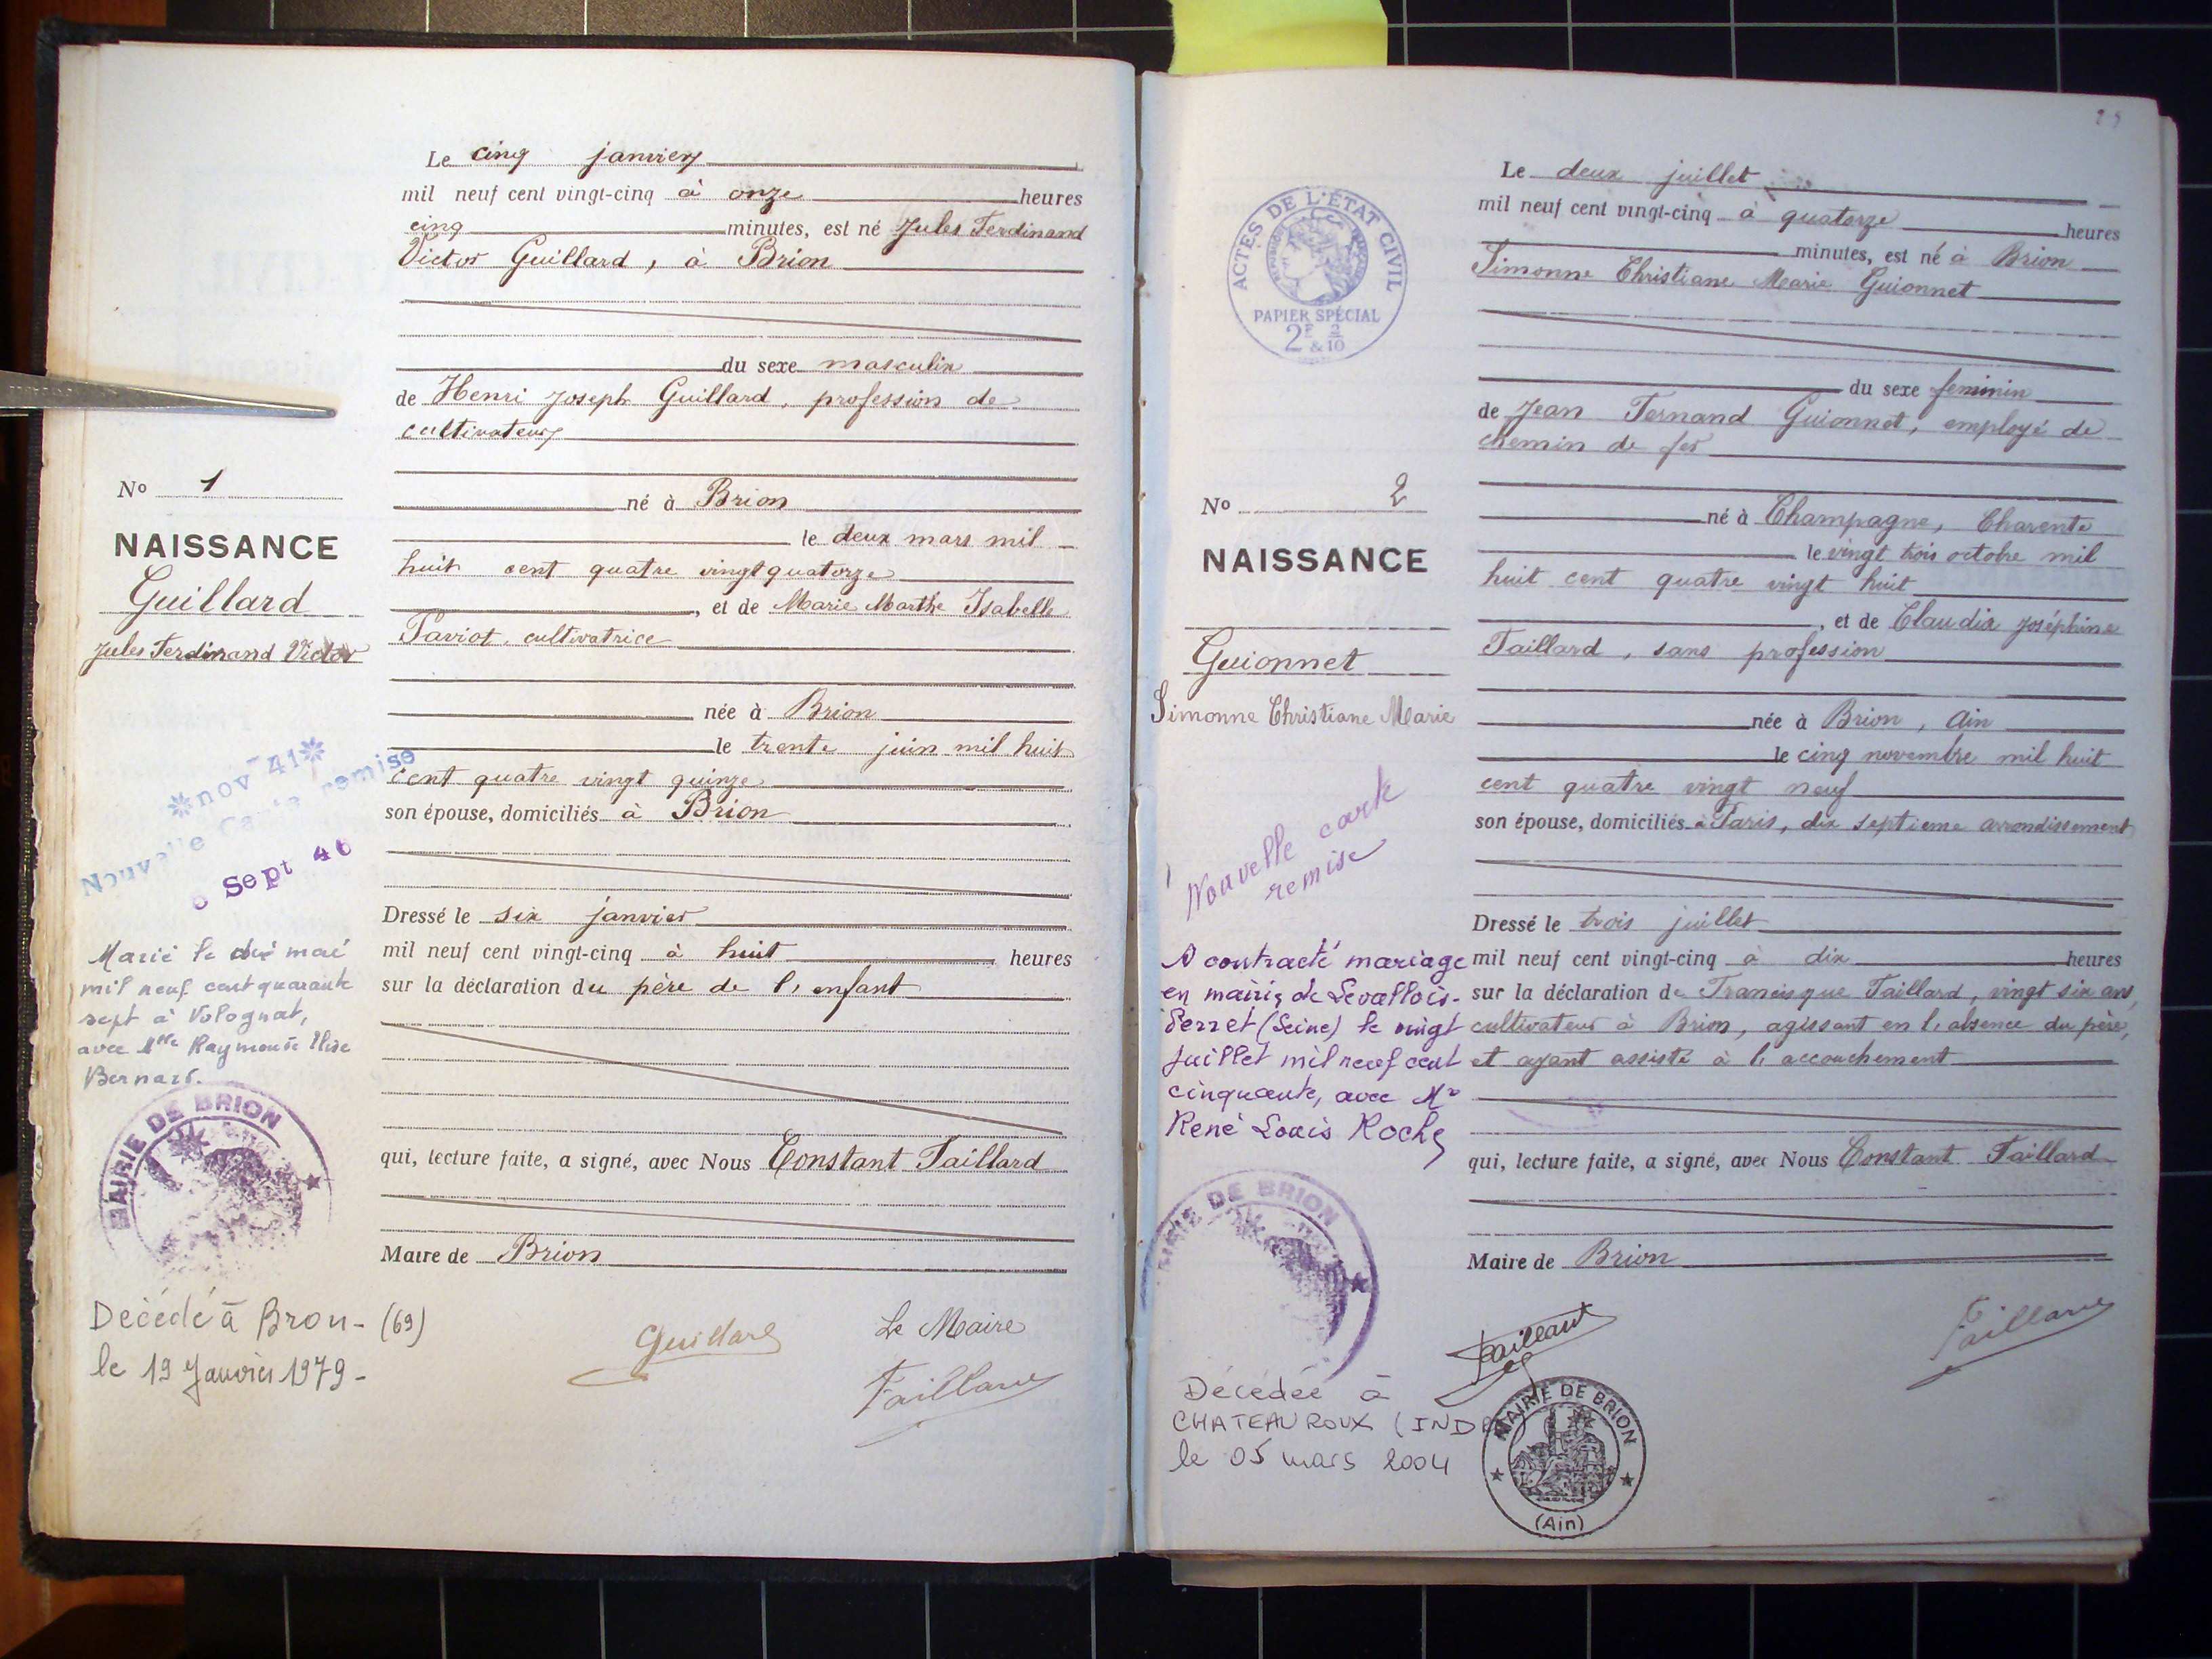 Le cinq janvier
mil neuf cent vingt-cinq à onze heures
cinq minutes, est né Jules Ferdinand
Victor Guillard, à Brion
du sexe masculin
de Henri Joseph Guillard, profession de
cultivateur
né à Brion
le deux mars mil
huit cent quatre vingt quatorze
, et de Marie Marthe Isabelle
Paviot, cultivatrice
née à Brion
le trente juin mil huit
cent quatre vingt quinze
son épouse, domiciliés à Brion
Dressé le six janvier
mil neuf cent vingt-cinq à huit heures
sur la déclaration du père de l'enfant
qui, lecture faite, a signé, avec Nous Constant Taillard
Maire de Brion
Guillard
Le Maire
Taillard
No 1
NAISSANCE
Guillard
Jules Ferdinand Victor
nov 41
Nouvelle Carte remise
Sept 46
Marié le mai
mil neuf cent quarante
sept à Volognat,
avec Mlle Raymonde Elise
Bernard.
MAIRIE DE BRION
Décédé à Bron - (69)
le 19 Janvier 1979 -
ACTES DE L'ÉTAT CIVIL
PAPIER SPÉCIAL
2F & 2/10
No 2
NAISSANCE
Guionnet
Simonne Christiane Marie
Nouvelle carte
remise
A contracté mariage
en mairie de Levallois-
Perret (Seine) le vingt
juillet mil neuf cent
cinquante, avec Mr
René Louis Roche
MAIRIE DE BRION
Décédée à
CHATEAUROUX (INDRE
le 05 mars 2004
Le deux juillet
mil neuf cent vingt-cinq à quatorze heures
minutes, est né à Brion
Simonne Christiane Marie Guionnet
du sexe feminin
de Jean Fernand Guionnet, employé de
chemin de fer
né à Champagne, Charente
le vingt trois octobre mil
huit cent quatre vingt huit
, et de Claudia Joséphine
Taillard, sans profession
née à Brion, Ain
le cinq novembre mil huit
cent quatre vingt neuf
son épouse, domiciliés à Paris, dix septieme arrondissement
Dressé le trois juillet
mil neuf cent vingt-cinq à dix heures
sur la déclaration de Francisque Taillard, vingt six ans,
cultivateur à Brion, agissant en l'absence du père,
et ayant assisté à l'accouchement
qui, lecture faite, a signé, avec Nous Constant Taillard
Maire de Brion
Taillard
Taillard
MAIRIE DE BRION
(Ain)